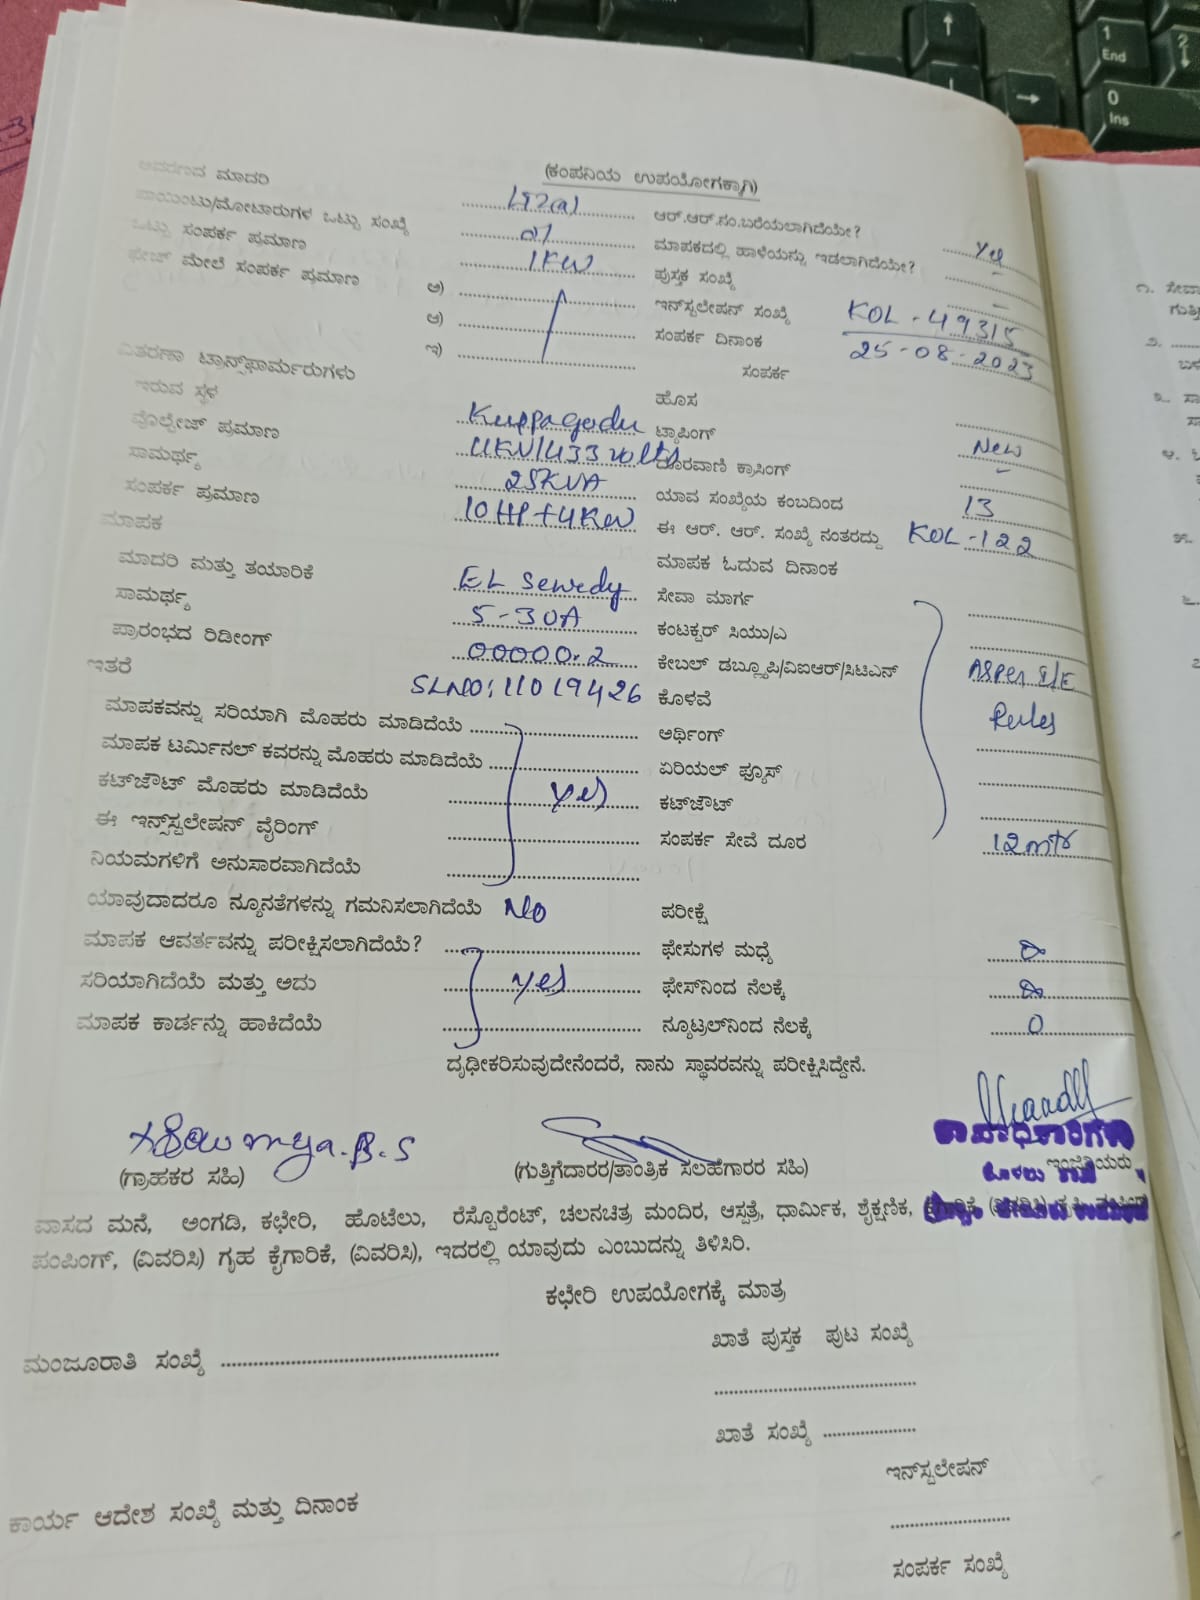 (ಕಂಪನಿಯ ಉಪಯೋಗಕ್ಕಾಗಿ)
ಆವರಣದ ಮಾದರಿ LT2(a) ಆರ್.ಆರ್.ನಂ.ಬರೆಯಲಾಗಿದೆಯೇ? Yes
ಪಾಯಿಂಟು/ಮೋಟಾರುಗಳ ಒಟ್ಟು ಸಂಖ್ಯೆ ಮಾಪಕದಲ್ಲಿ ಹಾಳೆಯನ್ನು ಇಡಲಾಗಿದೆಯೇ? –
ಒಟ್ಟು ಸಂಪರ್ಕ ಪ್ರಮಾಣ 1KW ಪುಸ್ತಕ ಸಂಖ್ಯೆ
ಫೇಜ್ ಮೇಲೆ ಸಂಪರ್ಕ ಪ್ರಮಾಣ ಅ) ಇನ್‌ಸ್ಟಲೇಷನ್ ಸಂಖ್ಯೆ KOL - 49315
ಆ) ಸಂಪರ್ಕ ದಿನಾಂಕ 25-08-2023
ಇ) ಸಂಪರ್ಕ
ವಿತರಣಾ ಟ್ರಾನ್ಸ್‌ಫಾರ್ಮರುಗಳು
ಇರುವ ಸ್ಥಳ Kuppagadu ಹೊಸ
ವೊಲ್ಟೇಜ್ ಪ್ರಮಾಣ 11KV/433 volts ಟ್ಯಾಪಿಂಗ್ New
ಸಾಮರ್ಥ್ಯ 25KVA ದೂರವಾಣಿ ಕ್ರಾಸಿಂಗ್
ಸಂಪರ್ಕ ಪ್ರಮಾಣ 10HP+4KW ಯಾವ ಸಂಖ್ಯೆಯ ಕಂಬದಿಂದ 13
ಮಾಪಕ ಈ ಆರ್. ಆರ್. ಸಂಖ್ಯೆ ನಂತರದ್ದು KOL-122
ಮಾಪಕ ಓದುವ ದಿನಾಂಕ
ಮಾದರಿ ಮತ್ತು ತಯಾರಿಕೆ EL Sewedy ಸೇವಾ ಮಾರ್ಗ
ಸಾಮರ್ಥ್ಯ 5-30A ಕಂಟಕ್ಟರ್ ಸಿಯು/ಎ
ಪ್ರಾರಂಭದ ರಿಡೀಂಗ್ 00000.2 ಕೇಬಲ್ ಡಬ್ಲ್ಯೂಪಿ/ವಿಐಆರ್/ಸಿಟಿಎನ್ As per I/E
ಇತರೆ SLNO: 11019426 ಕೊಳವೆ Rules
ಮಾಪಕವನ್ನು ಸರಿಯಾಗಿ ಮೊಹರು ಮಾಡಿದೆಯೆ ಅರ್ಥಿಂಗ್
ಮಾಪಕ ಟರ್ಮಿನಲ್ ಕವರನ್ನು ಮೊಹರು ಮಾಡಿದೆಯೆ ಏರಿಯಲ್ ಫ್ಯೂಸ್
ಕಟ್‌ಔಟ್ ಮೊಹರು ಮಾಡಿದೆಯೆ yes ಕಟ್‌ಔಟ್
ಈ ಇನ್ಸ್‌ಸ್ಟಲೇಷನ್ ವೈರಿಂಗ್ ಸಂಪರ್ಕ ಸೇವೆ ದೂರ 12mtr
ನಿಯಮಗಳಿಗೆ ಅನುಸಾರವಾಗಿದೆಯೆ
ಯಾವುದಾದರೂ ನ್ಯೂನತೆಗಳನ್ನು ಗಮನಿಸಲಾಗಿದೆಯೆ No ಪರೀಕ್ಷೆ
ಮಾಪಕ ಆವರ್ತವನ್ನು ಪರೀಕ್ಷಿಸಲಾಗಿದೆಯೆ? ಫೇಸುಗಳ ಮಧ್ಯೆ
ಸರಿಯಾಗಿದೆಯೆ ಮತ್ತು ಅದು yes ಫೇಸ್‌ನಿಂದ ನೆಲಕ್ಕೆ
ಮಾಪಕ ಕಾರ್ಡನ್ನು ಹಾಕಿದೆಯೆ ನ್ಯೂಟ್ರಲ್‌ನಿಂದ ನೆಲಕ್ಕೆ 0
ದೃಢೀಕರಿಸುವುದೇನೆಂದರೆ, ನಾನು ಸ್ಥಾವರವನ್ನು ಪರೀಕ್ಷಿಸಿದ್ದೇನೆ.
x Sowmya.B.S
(ಗ್ರಾಹಕರ ಸಹಿ) (ಗುತ್ತಿಗೆದಾರರ/ತಾಂತ್ರಿಕ ಸಲಹೆಗಾರರ ಸಹಿ) ಇಂಜಿನಿಯರು
ವಾಸದ ಮನೆ, ಅಂಗಡಿ, ಕಛೇರಿ, ಹೊಟೆಲು, ರೆಸ್ಟೊರೆಂಟ್, ಚಲನಚಿತ್ರ ಮಂದಿರ, ಆಸ್ಪತ್ರೆ, ಧಾರ್ಮಿಕ, ಶೈಕ್ಷಣಿಕ,
ಪಂಪಿಂಗ್, (ವಿವರಿಸಿ) ಗೃಹ ಕೈಗಾರಿಕೆ, (ವಿವರಿಸಿ), ಇದರಲ್ಲಿ ಯಾವುದು ಎಂಬುದನ್ನು ತಿಳಿಸಿರಿ.
ಕಛೇರಿ ಉಪಯೋಗಕ್ಕೆ ಮಾತ್ರ
ಖಾತೆ ಪುಸ್ತಕ ಪುಟ ಸಂಖ್ಯೆ
ಮಂಜೂರಾತಿ ಸಂಖ್ಯೆ
ಖಾತೆ ಸಂಖ್ಯೆ
ಇನ್‌ಸ್ಟಲೇಷನ್
ಕಾರ್ಯ ಆದೇಶ ಸಂಖ್ಯೆ ಮತ್ತು ದಿನಾಂಕ
ಸಂಪರ್ಕ ಸಂಖ್ಯೆ